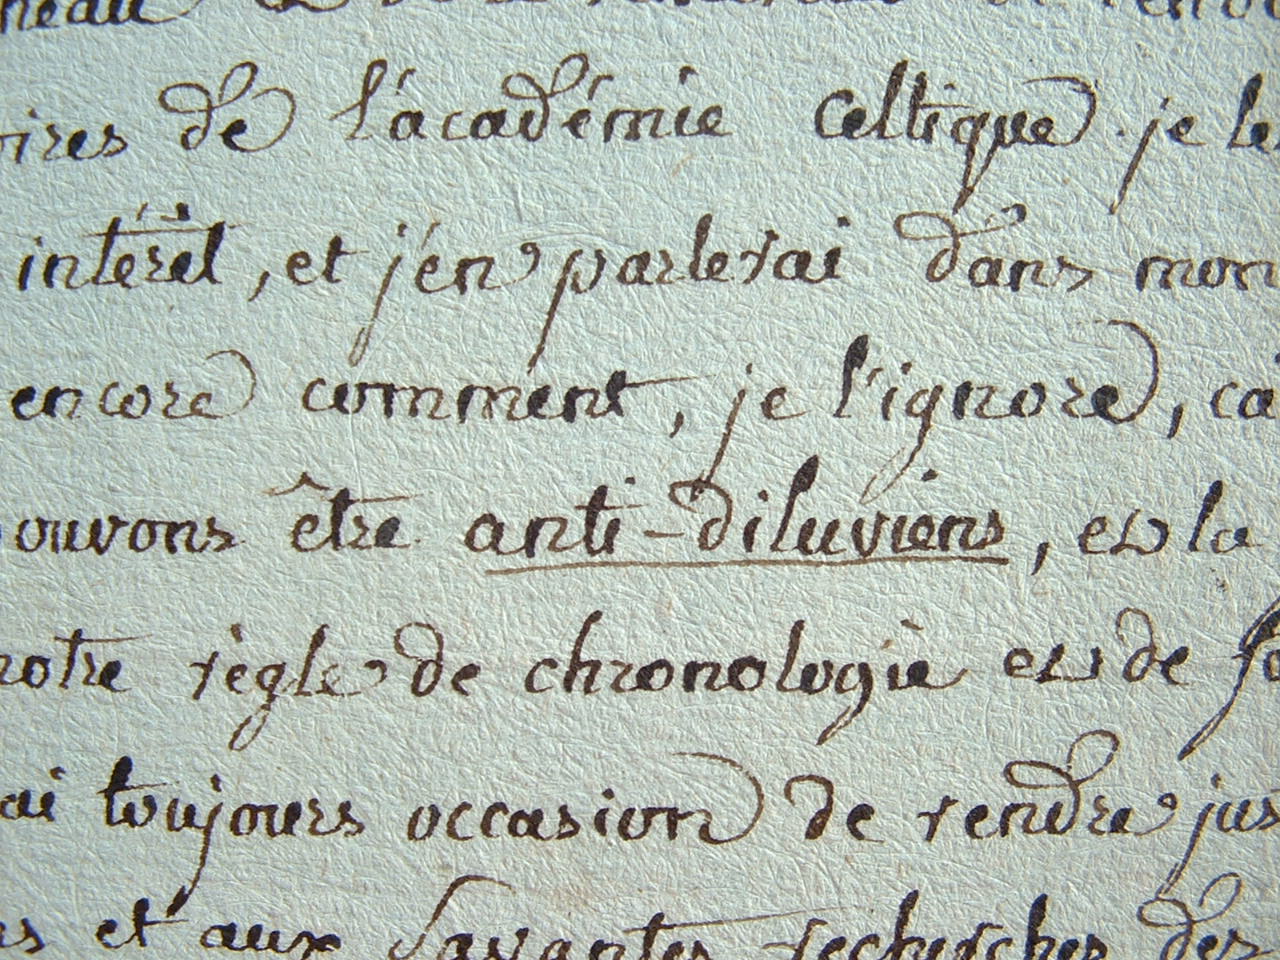 ires de l'académie Celtique. je les
intérêt, et j'en parlerai dans mon
encore comment, je l'ignore, ca
ouvons être anti-diluviens, et la
notre règle de chronologie et de
ai toujours occasion de rendre jus
et aux Savantes recherches des